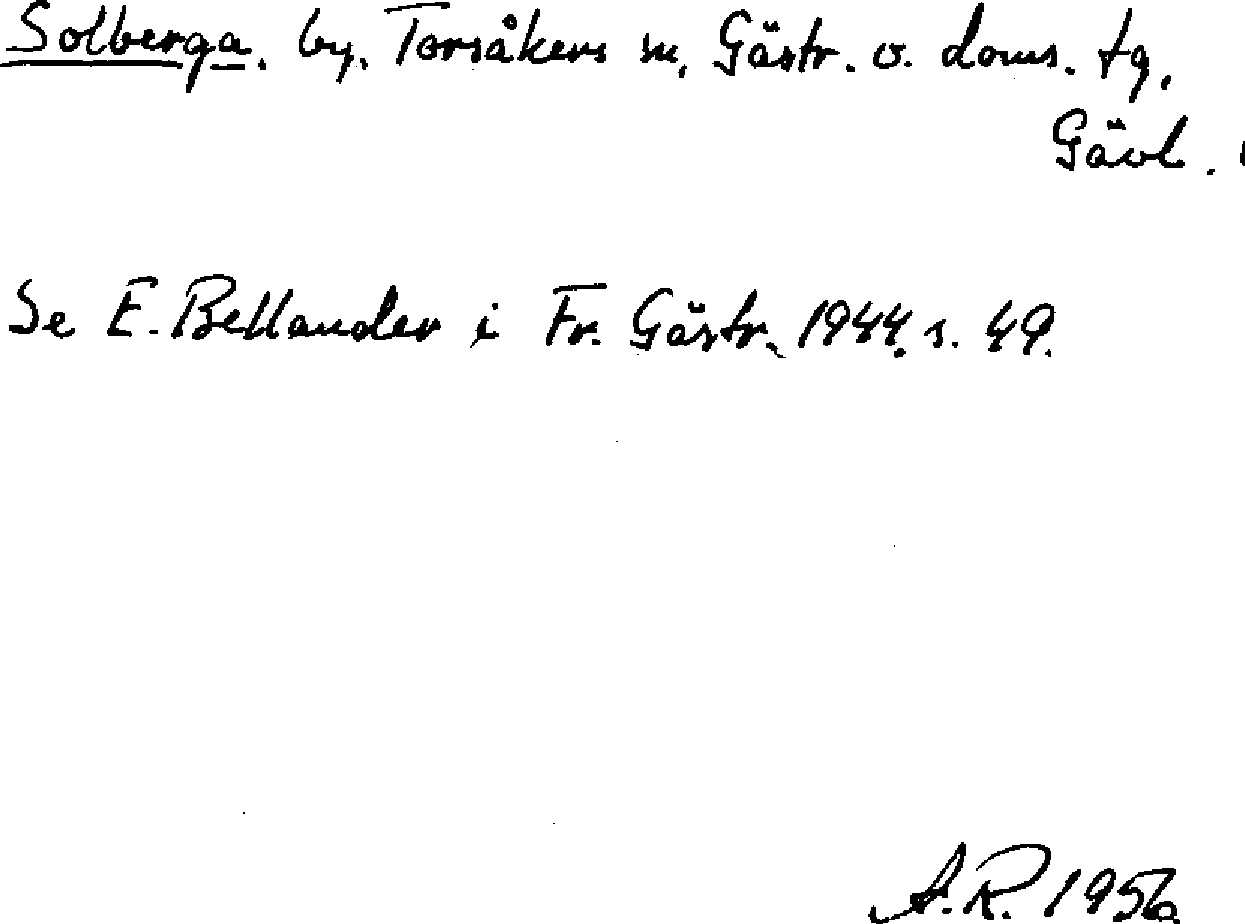 Solberga. by. Torsåkers sn, Gästr. v. doms. tg.
Gävl.
Se E. Bellander i Fr. Gästr. 1944. s. 49.
A.R. 1956